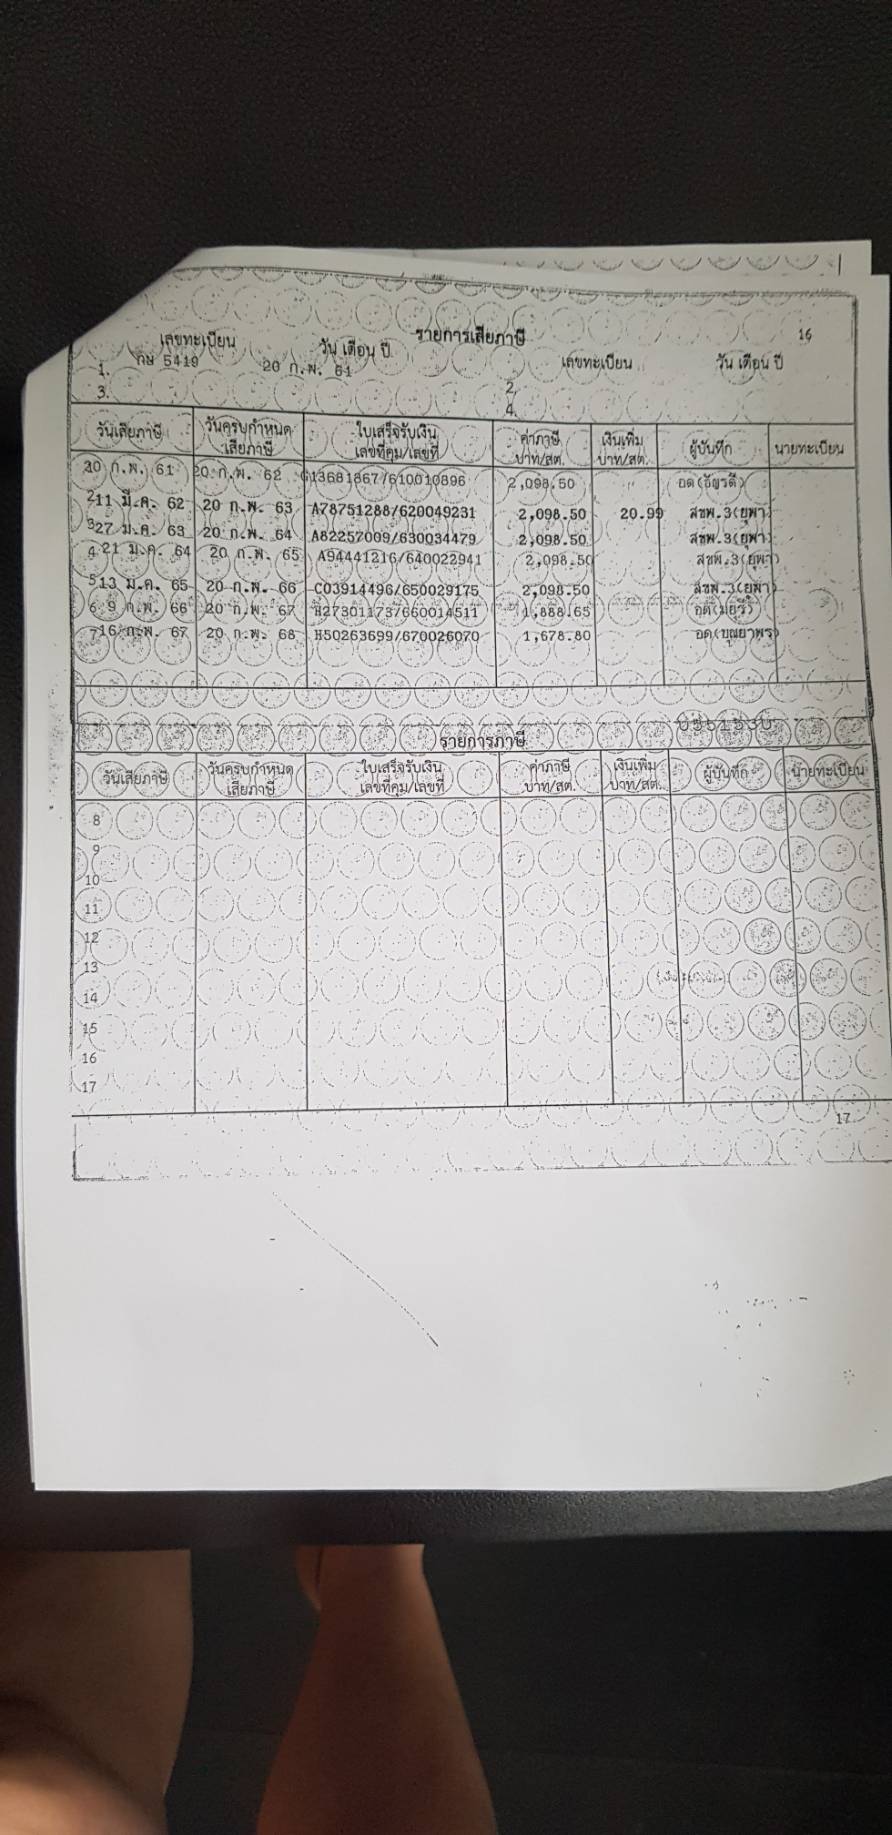 รายการเสียภาษี 16
เลขทะเบียน วัน เดือน ปี เลขทะเบียน วัน เดือน ปี
1. กษ 5419 20 ก.พ. 61 2.
3. 4.
วันเสียภาษี วันครบกำหนด ใบเสร็จรับเงิน ค่าภาษี เงินเพิ่ม ผู้บันทึก นายทะเบียน
เสียภาษี เลขที่คุม/เลขที่ บาท/สต. บาท/สต.
20 ก.พ. 61 20 ก.พ. 62 613681867/610010896 2,098.50
2 11 มี.ค. 62 20 ก.พ. 63 A78751288/620049231 2,098.50 20.99 สขพ.3(ยุพา)
3 27 ม.ค. 63 20 ก.พ. 64 A82257009/630034479 2,098.50 สขพ.3(ยุพา)
4 21 ม.ค. 64 20 ก.พ. 65 A94441216/640022941 2,098.50 สขพ.3(ยุพา)
5 13 ม.ค. 65 20 ก.พ. 66 C03914496/650029175 2,098.50 สขพ.3(ยุพา)
6 9 ก.พ. 66 20 ก.พ. 67 H27301173/660014511 1,888.65
7 16 ก.พ. 67 20 ก.พ. 68 H50263699/670026070 1,678.80
รายการภาษี
วันเสียภาษี วันครบกำหนด ใบเสร็จรับเงิน ค่าภาษี เงินเพิ่ม ผู้บันทึก นายทะเบียน
เสียภาษี เลขที่คุม/เลขที่ บาท/สต. บาท/สต.
8
9
10
11
12
13
14
15
16
17
17